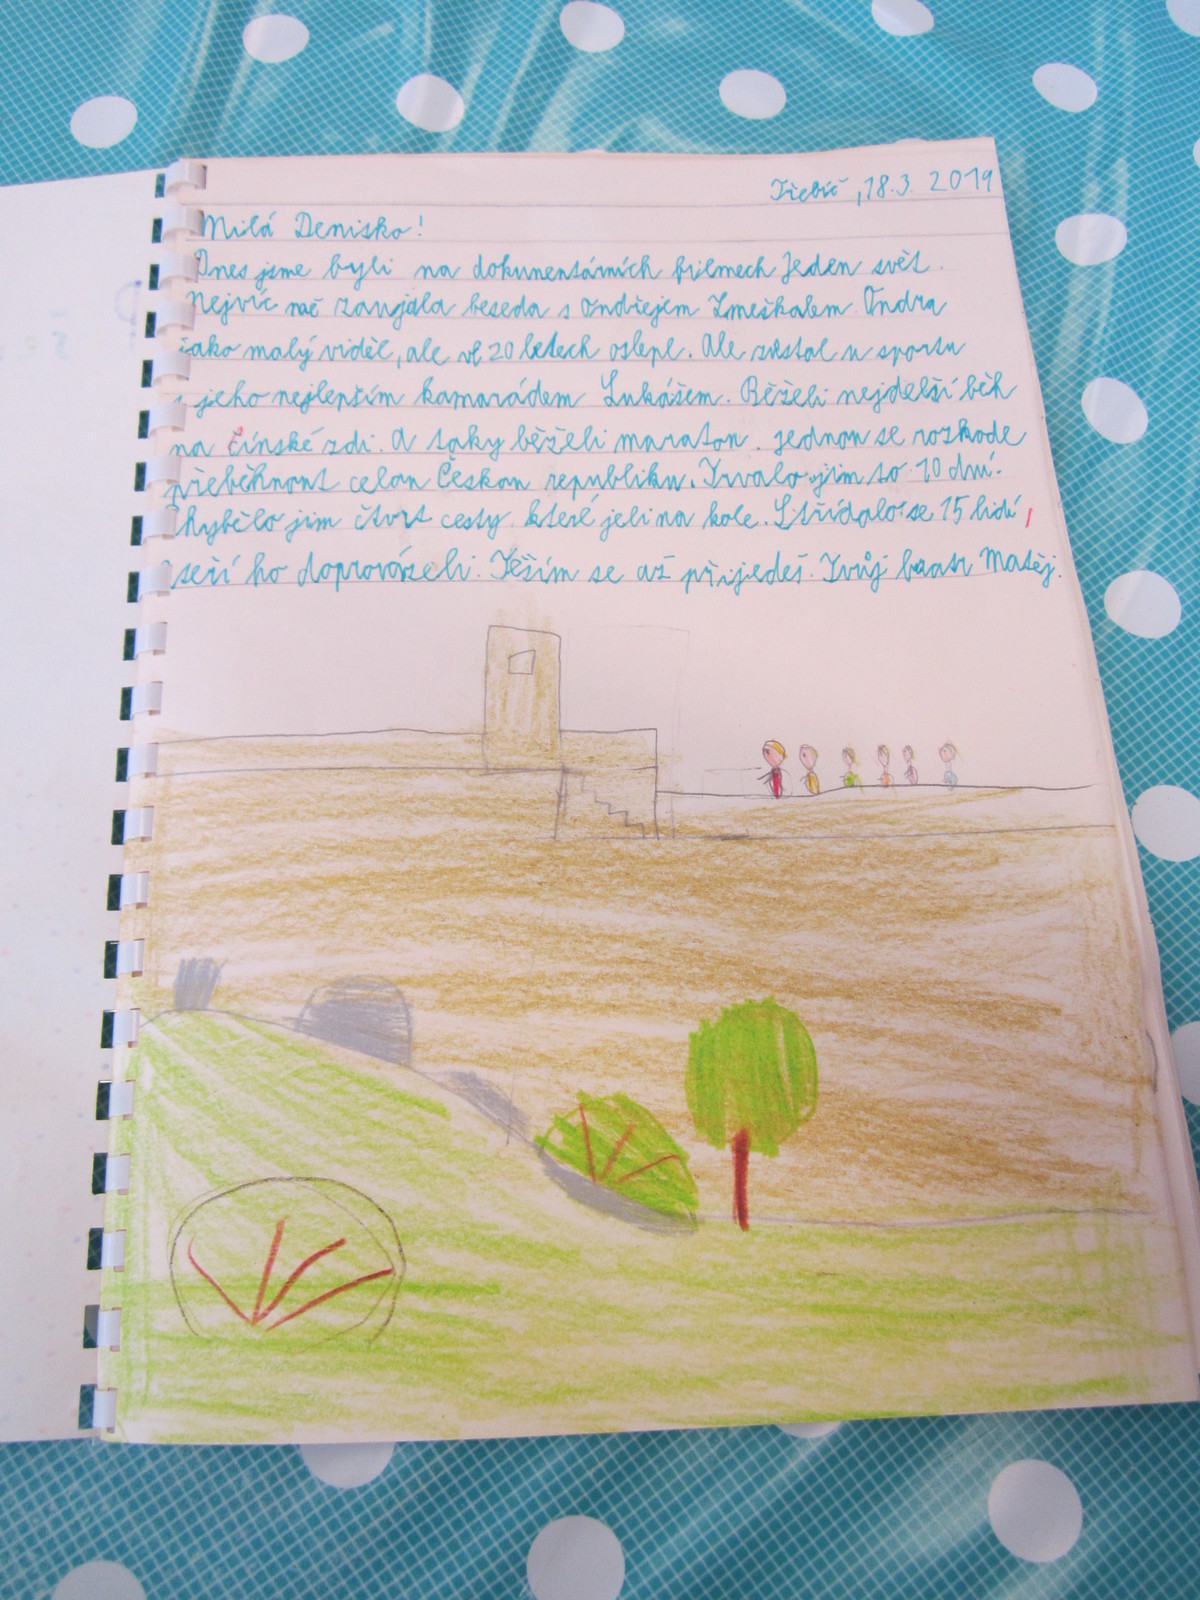 Třebíč, 18.3. 2019
Milá Denisko!
Dnes jsme byli na dokumentárních filmech Jeden svět.
Nejvíc zaujala beseda s Ondřejem Zmeškalem. Ondra
jako malý viděl, ale ve 20 letech oslepl. Ale zůstal u sportu
s jeho nejlepším kamarádem Lukášem. Běželi nejdelší běh
na čínské zdi. A taky běželi maraton. Jednou se rozhodl
přeběhnout celou Českou republiku. Trvalo jim to 10 dní.
Chybělo jim čtvrt cesty, které jeli na kole. Střídalo se 15 lidí,
kteří ho doprovázeli. Těším se až přijedeš. Tvůj bratr Matěj.